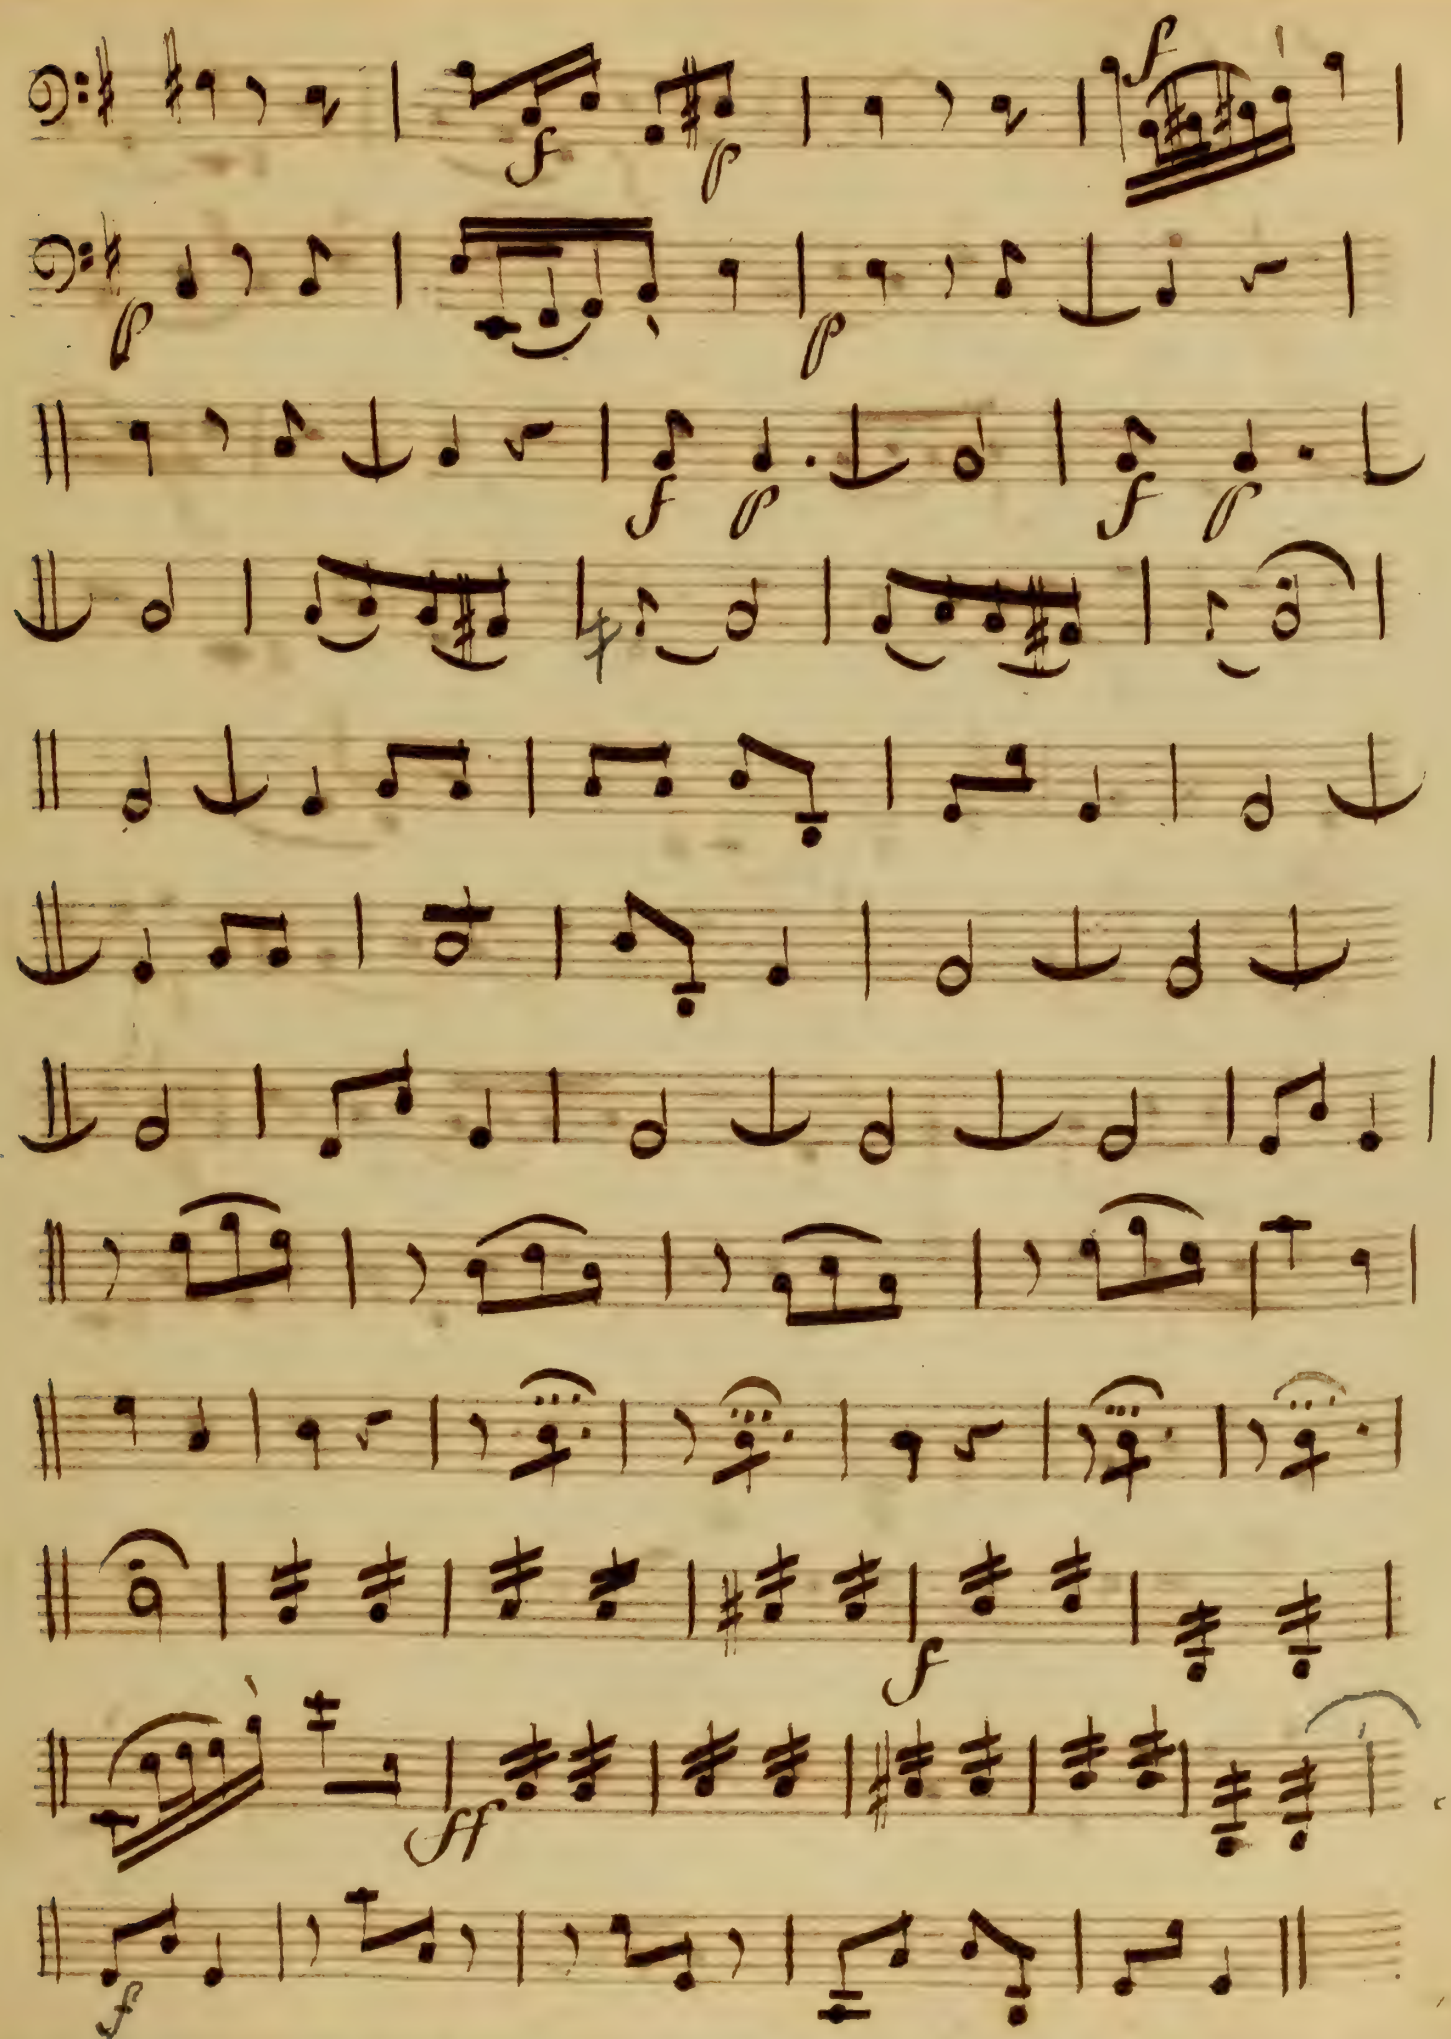 f p f
p p
f p f p
f
ff
f